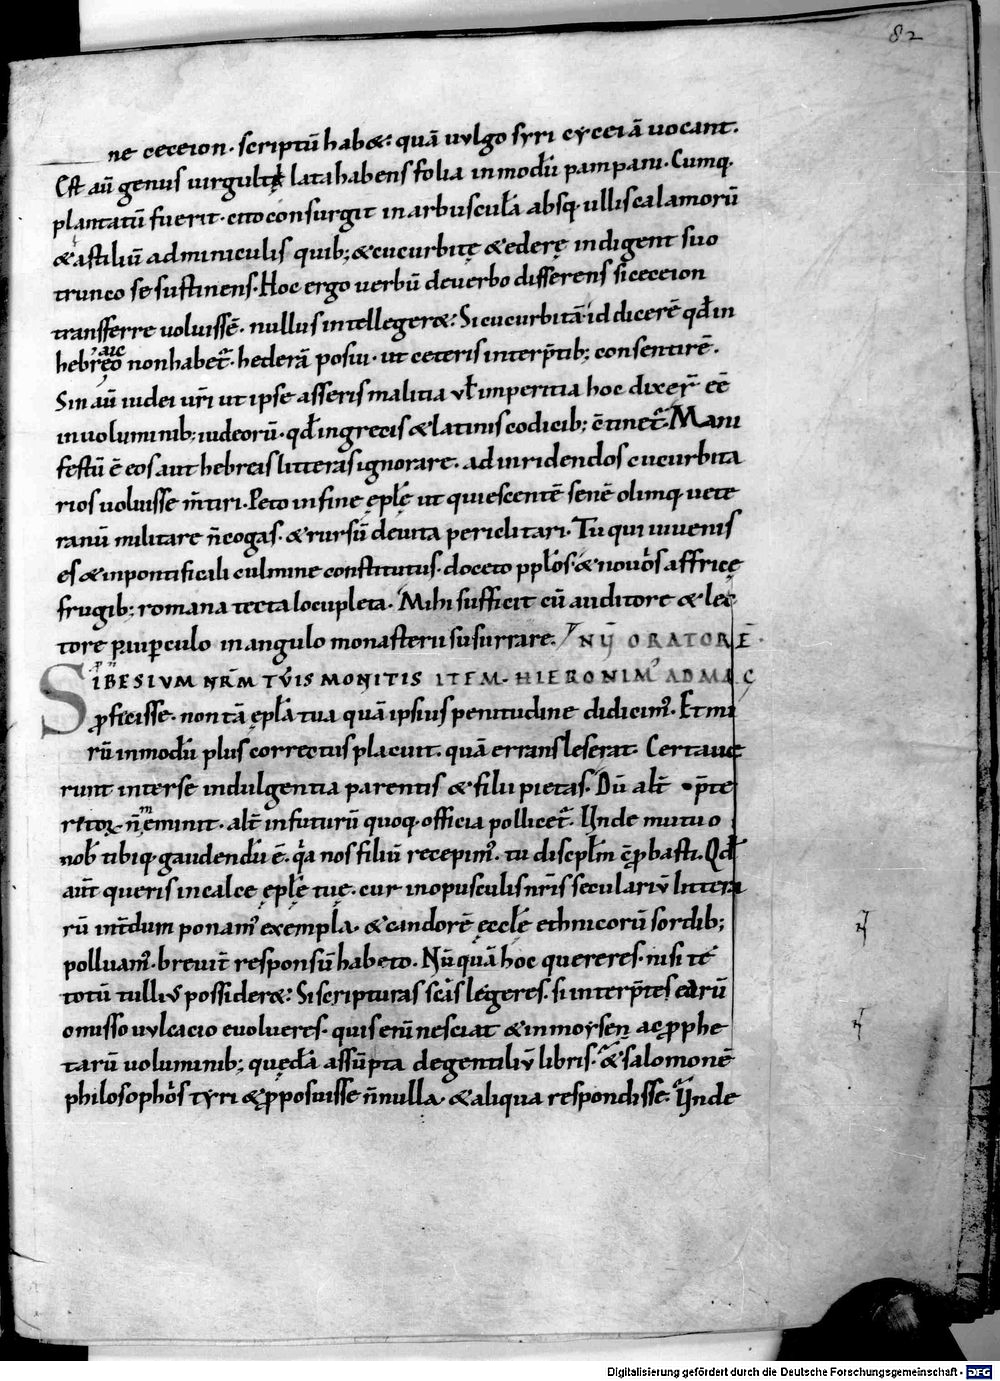 82
ne ceceion · scriptū hab&: quā uulgo syri cyceiā uocant.
Est aū genus uirgulti lata habens folia in modū pampani. Cumq·
plantatū fuerit · cito consurgit in arbusculā absq· ullis calamorū
& astiliū adminiculis quib; & cucurbitę & ederę indigent suo
trunco se sustinens. Hoc ergo uerbū de uerbo differens si ceceion
transferre uoluissē · nullus intelleger&: Si cucurbitā id dicerē qđ in
hebreo non habet' · hederā posui · ut ceteris interp̄tib; consentirē.
Sin aū iudei ur̄i ut ipse asseris malitia vł imperitia hoc dixer̄ eē
in uoluminib; iudeorū · qđ in grecis & latinis codicib; c̄tinet'. Mani
festū ē eos aut hebreis litteras ignorare · ad inridendos cucurbita
rios uoluisse m̄tiri. Peto in fine ęplę ut quiescentē senē olimq· uete
ranū militare n̄ cogas · & rursū de uita periclitari. Tu qui iuuenis
es & in pontificali culmine constitutus · doceto pplos · & nouos affricę
frugib; romana tecta locupleta. Mihi sufficit cū auditore & lec
tore pauperculo in angulo monasterii susurrare. NŪ ORATORĒ·
SIBESIVM NRM TVIS MONITIS ITEM · HIERONIM' AD MAG
ꝓfecisse · non tā ęplā tua quā ipsius penitudine didicim'. Et mi
rū in modū plus correctus placuit · quā errans leserat. Certaue
runt inter se indulgentia parentis & filii pietas. Dū alt̄ p̄te
ritor n̄ meminit · alt̄ in futurū quoq· officia pollicet'. Unde mutuo
nob̄ tibiq· gaudendū ē · q̄a nos filiū recepim' · tu discipłm c̄ꝓbasti. Qđ
aūt queris in calce ęplę tuę · cur in opusculis nr̄is seculariū littera
rū int̄dum ponam' exempla · & candorē ęcclę ethnicorū sordib;
polluam' · breuit̄ responsū habeto. Nūquā hoc quereres · nisi te
totū tullius possider&: Si scripturas scās legeres · si interp̄tes earū
omisso uulcacio euolueres · quis enī nesciat & in moysen ac ꝓphe
tarū uoluminib; quedā assūpta de gentiliū libris · & salomonē
philosophos tyri & ꝓposuisse n̄nulla · & aliqua respondisse. Unde
Digitalisierung gefördert durch die Deutsche Forschungsgemeinschaft · DFG